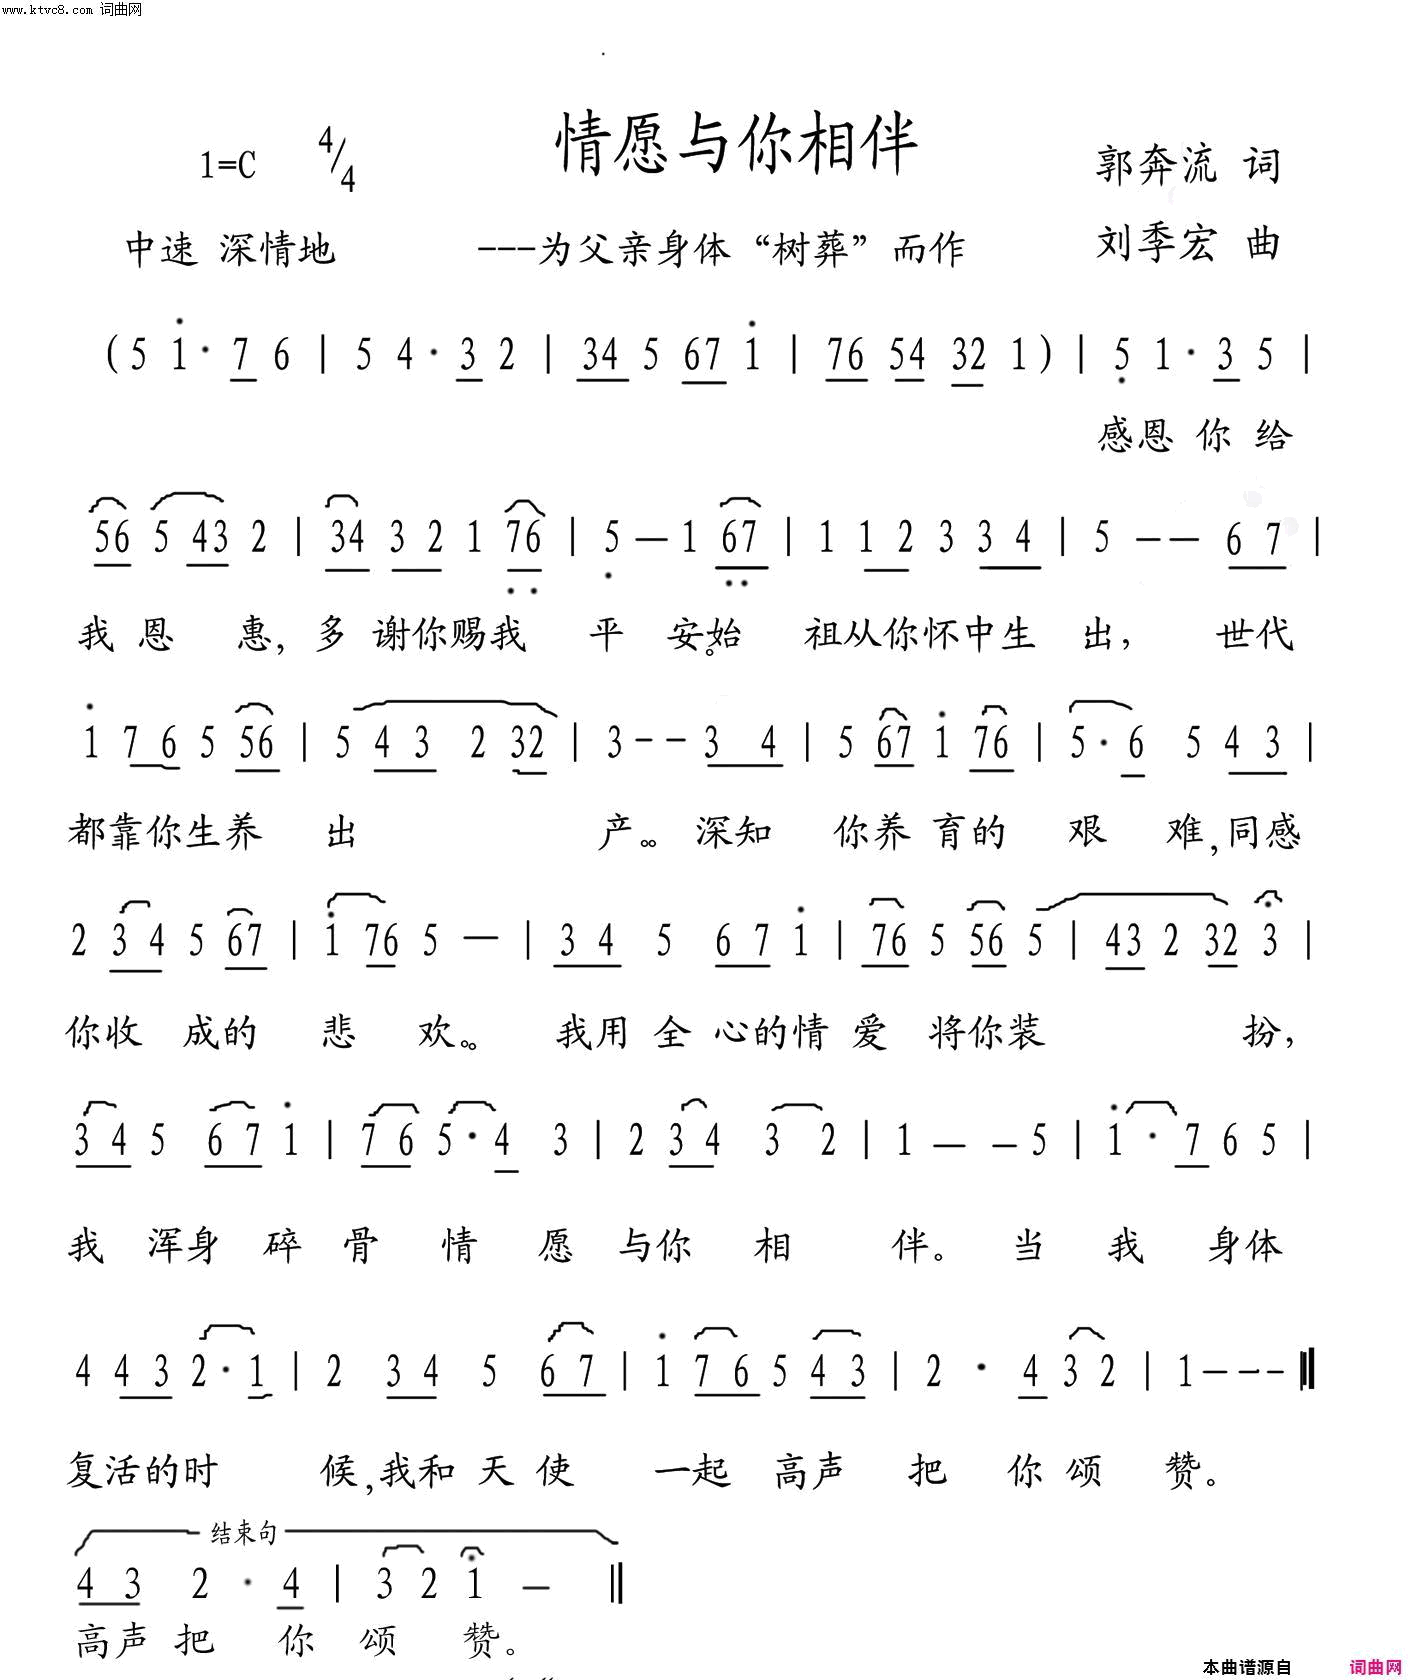 www.ktvc8.com 词曲网
情愿与你相伴
1=C 4/4
郭奔流 词
中速 深情地 ---为父亲身体“树葬”而作 刘季宏 曲
(5 1· 7 6 | 5 4· 3 2 | 34 5 67 1 | 76 54 32 1) | 5 1· 3 5 |
感恩 你 给
56 5 43 2 | 34 3 2 1 76 | 5 — 1 67 | 1 1 2 3 3 4 | 5 —— 6 7 |
我 恩 惠, 多 谢你赐我 平 安。始 祖从你怀中生 出, 世代
1 7 6 5 56 | 5 4 3 2 32 | 3 -- 3 4 | 5 67 1 76 | 5· 6 5 4 3 |
都靠你生养 出 产。。深知 你养 育的 艰 难,同感
2 3 4 5 67 | 1 76 5 — | 3 4 5 6 7 1 | 76 5 56 5 | 43 2 32 3 |
你收 成的 悲 欢。。 我用 全 心的情 爱 将你装 扮,
3 4 5 6 7 1 | 7 6 5· 4 3 | 2 3 4 3 2 | 1 — — 5 | 1· 7 6 5 |
我 浑身 碎 骨 情 愿 与你 相 伴。 当 我 身体
4 4 3 2· 1 | 2 3 4 5 6 7 | 1 7 6 5 4 3 | 2 · 4 3 2 | 1 — — — ‖
复活的时 候,我和 天 使 一起 高声 把 你 颂 赞。
结束句
4 3 2 · 4 | 3 2 1 — ‖
高声 把 你 颂 赞。
本曲谱源自 词曲网